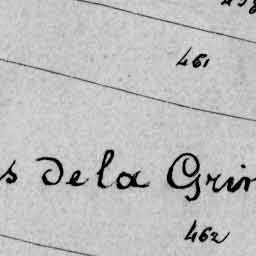 461
s de la Grin
462